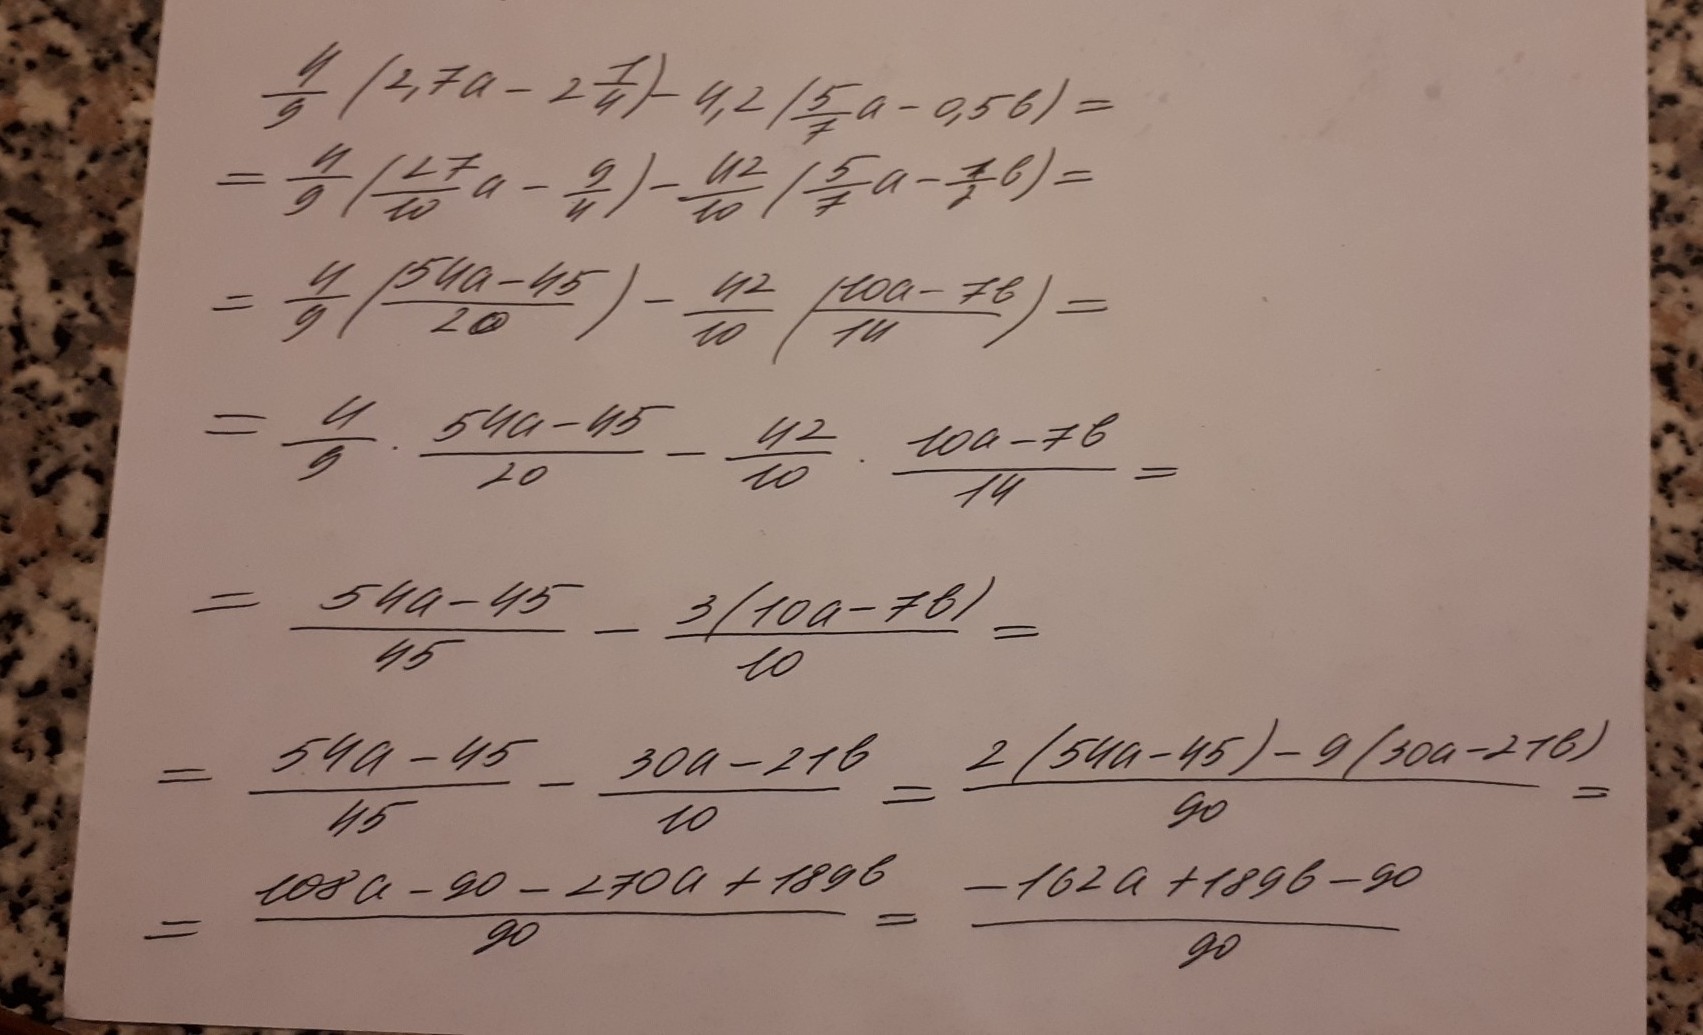 4/9 (2,7a - 2 1/4) - 4,2 (5/7 a - 0,5b) =
= 4/9 (27/10 a - 9/4) - 42/10 (5/7 a - 1/2 b) =
= 4/9 ((54a - 45)/20) - 42/10 ((10a - 7b)/14) =
= 4/9 · (54a - 45)/20 - 42/10 · (10a - 7b)/14 =
= (54a - 45)/45 - 3(10a - 7b)/10 =
= (54a - 45)/45 - (30a - 21b)/10 = (2(54a - 45) - 9(30a - 21b))/90 =
= (108a - 90 - 270a + 189b)/90 = (-162a + 189b - 90)/90